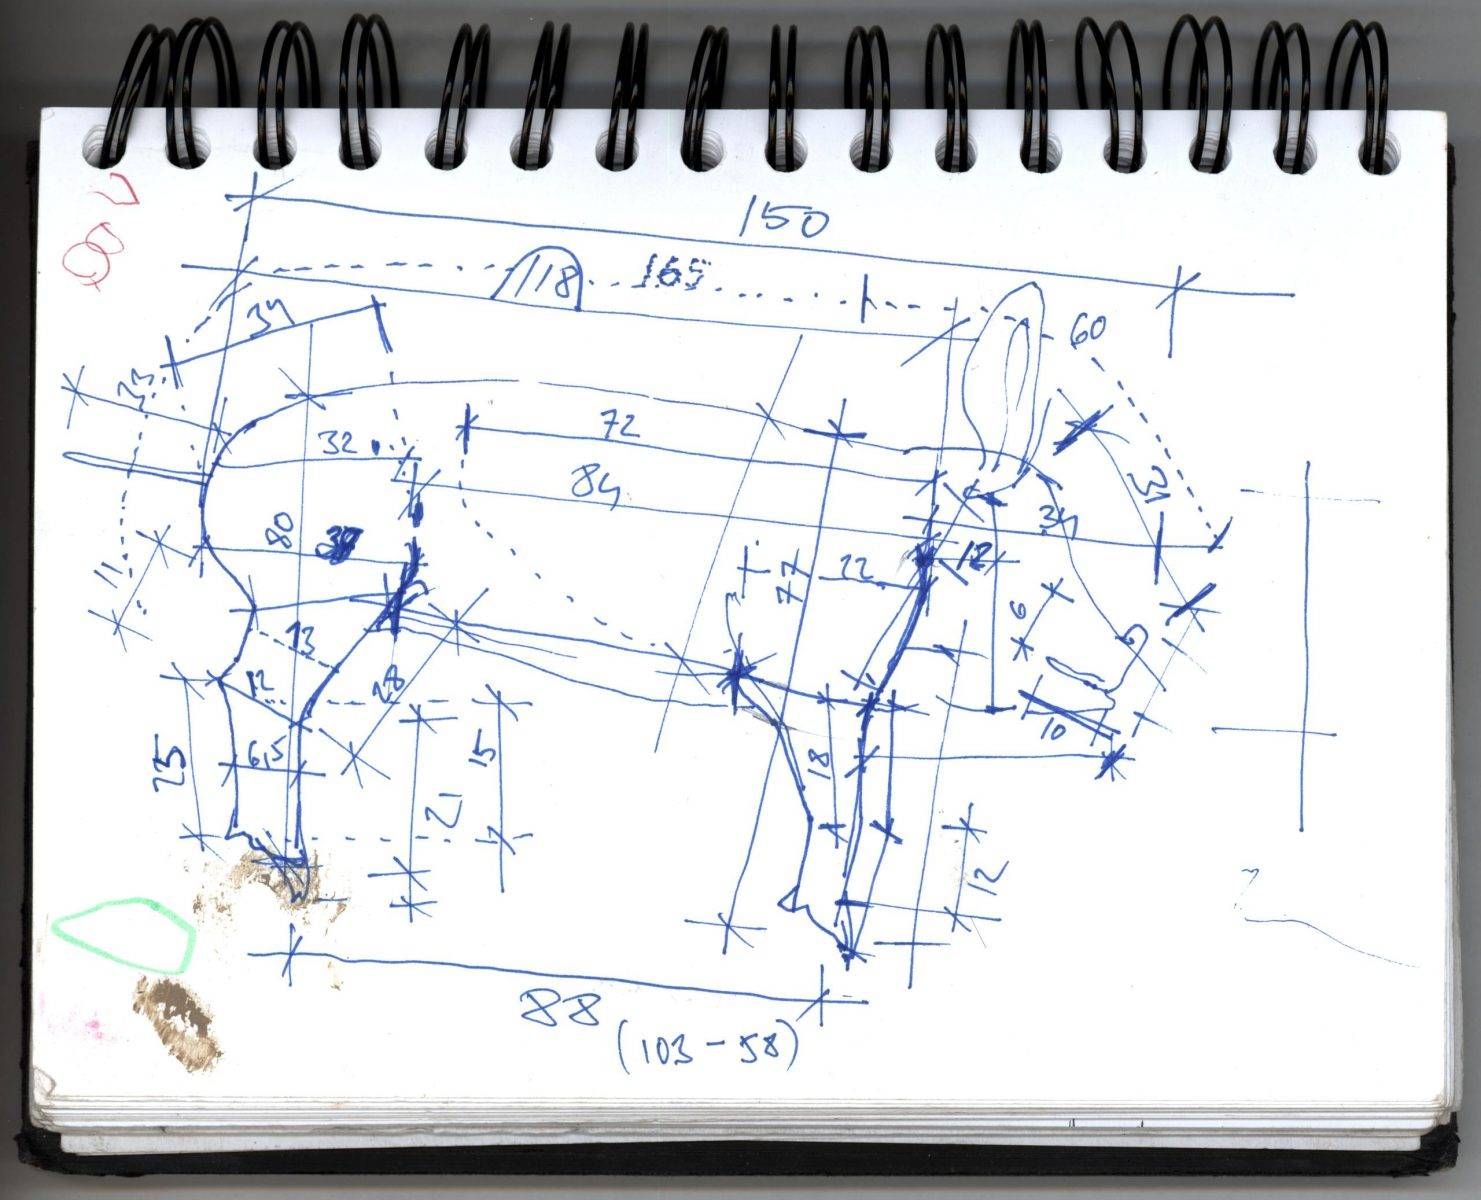 150
118 165
34
60
23
72
32
84
31
34
80
77
22
12
11
6
13
12
28
10
6,5
25
15
18
21
12
88
(103-58)